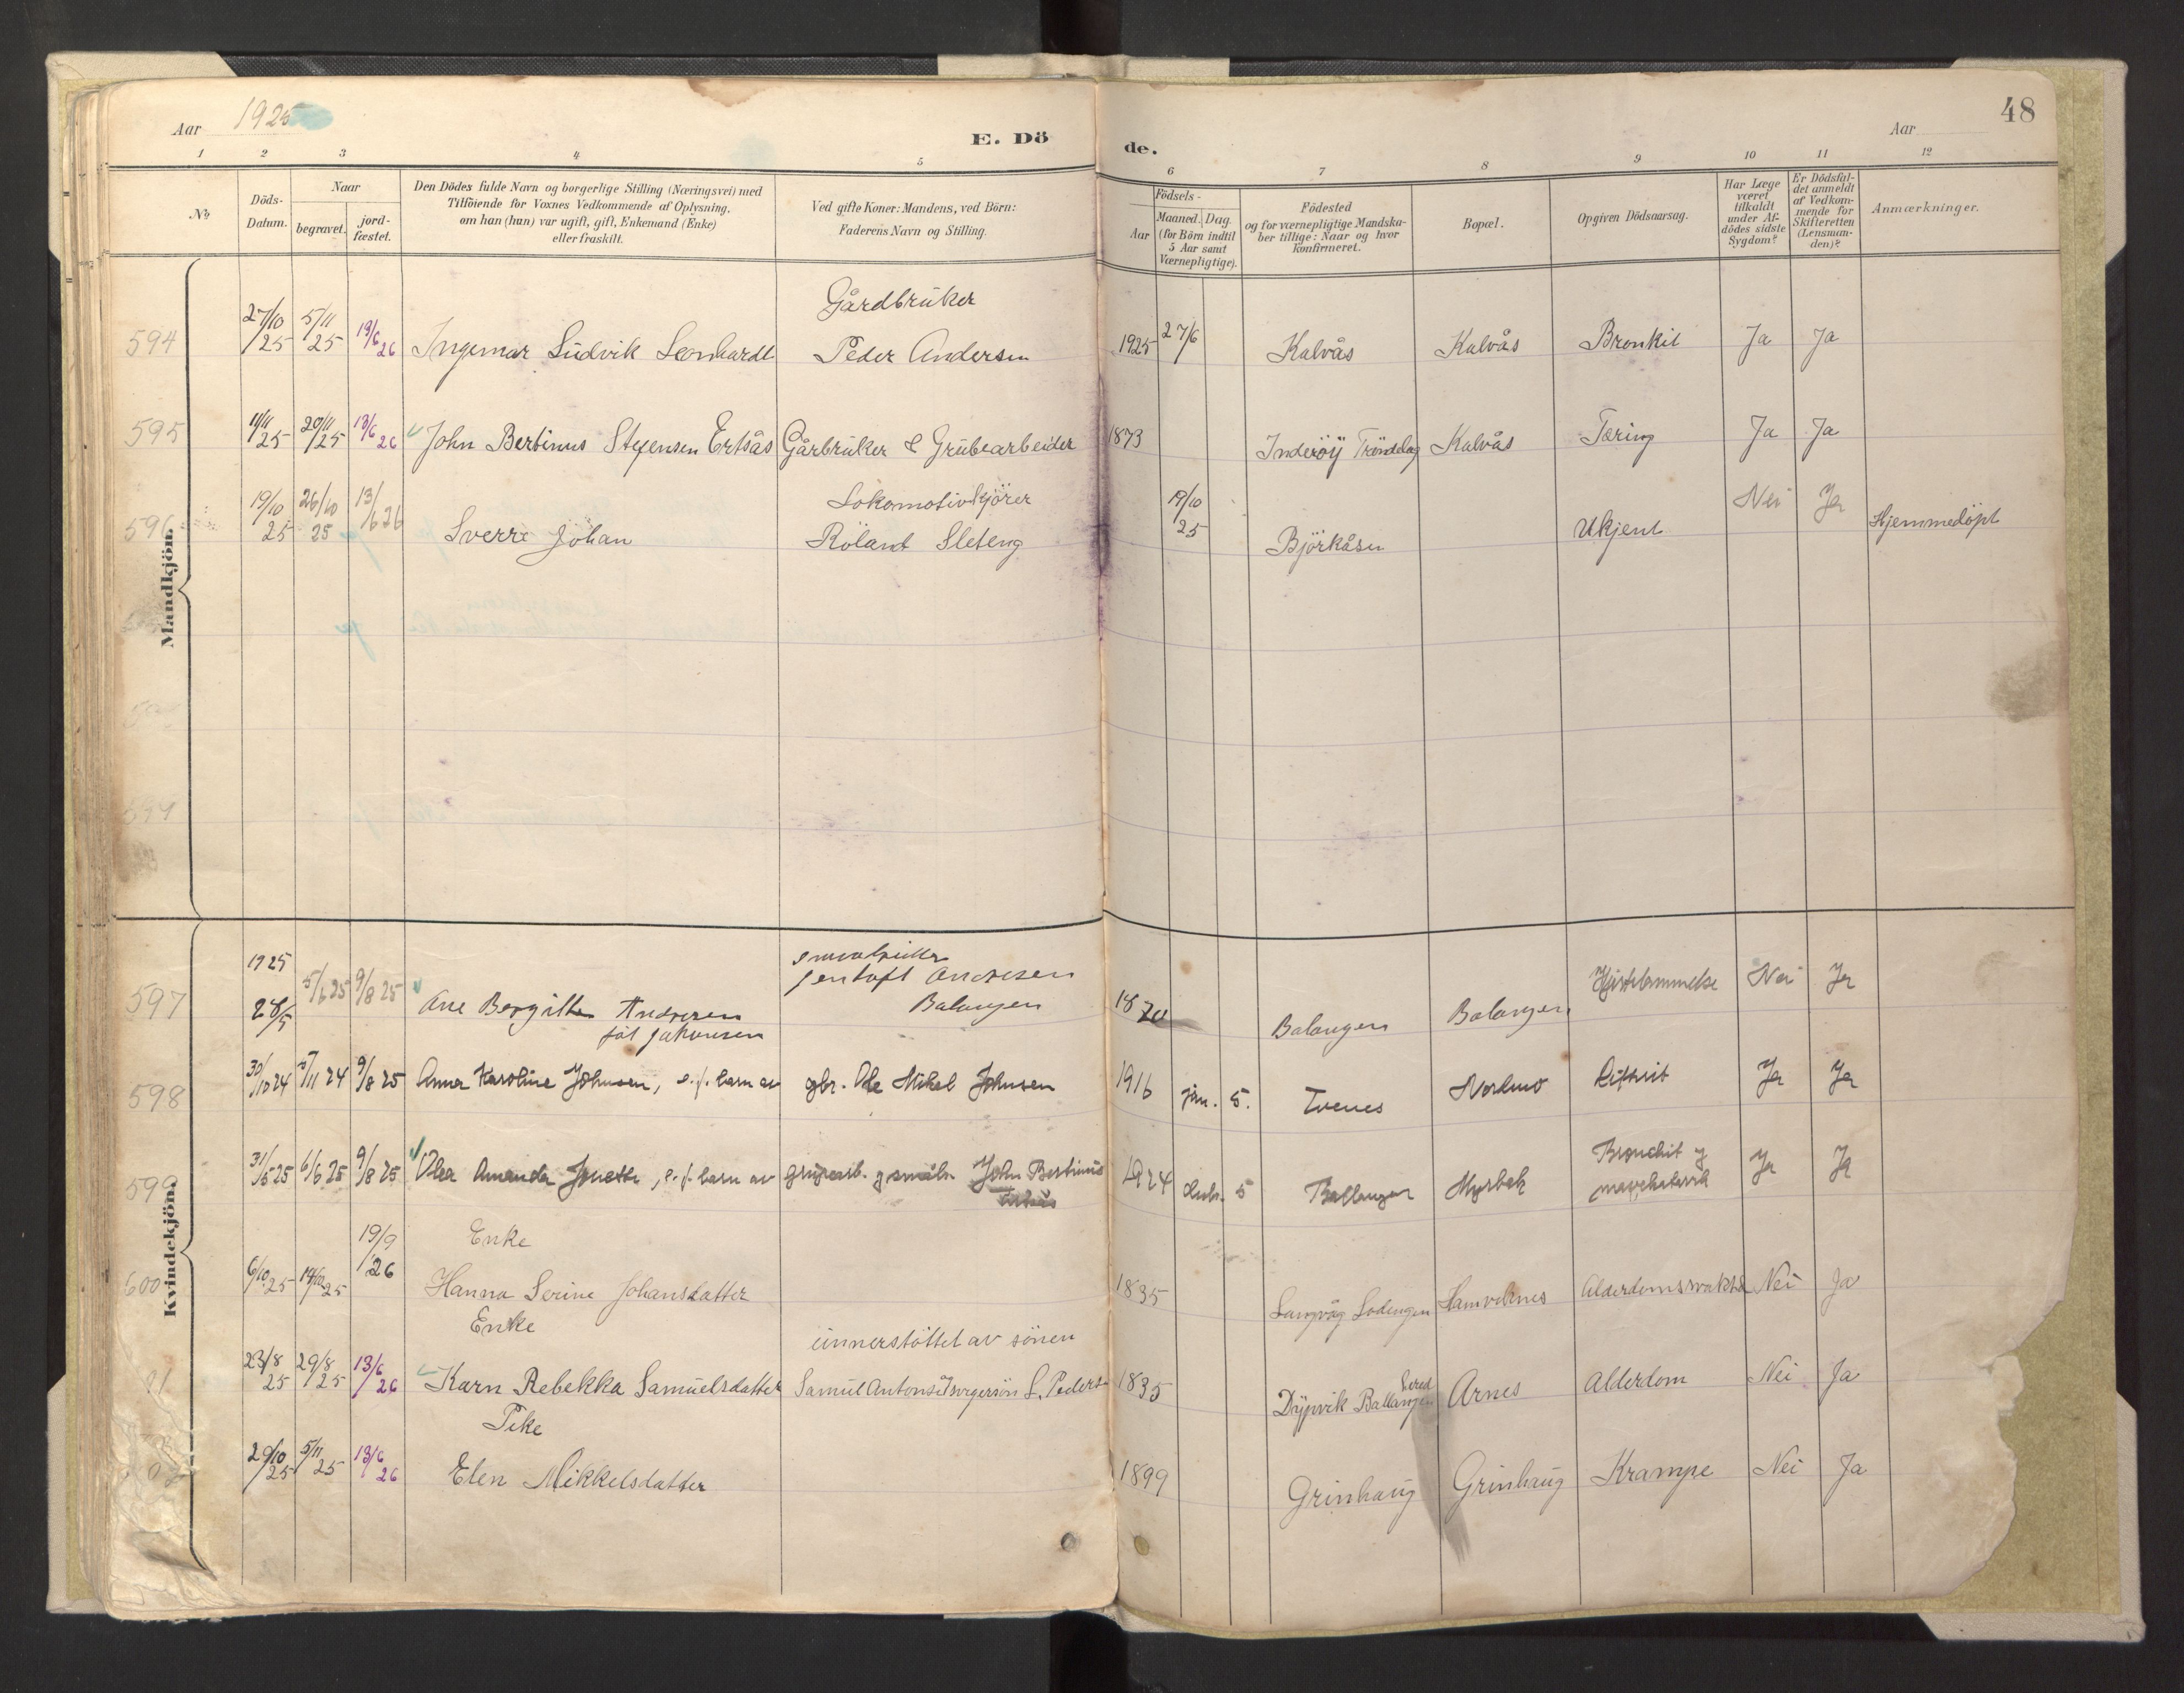 Aar 1925
E. Döde.
Aar
48
1 2 3 4 5 6 7 8 9 10 11 12
No
Döds-Datum.
Naar
begravet.
jord-fæstet.
Den Dödes fulde Navn og borgerlige Stilling (Næringsvei) med
Tilföiende for Voxnes Vedkommende af Oplysning,
om han (hun) var ugift, gift, Enkemand (Enke)
eller fraskilt.
Ved gifte Koner: Mandens, ved Börn:
Faderens Navn og Stilling.
Födsels-
Aar
Maaned. Dag.
(for Börn indtil
5 Aar samt
Værnepligtige).
Födested
og for værnepligtige Mandska-
ber tillige: Naar og hvor
konfirmeret.
Bopæl.
Opgiven Dödsaarsag.
Har Læge
været
tilkaldt
under Af-
dödes sidste
Sygdom?
Er Dödsfal-
det anmeldt
af Vedkom-
mende for
Skifteretten
(Lensman-
den)?
Anmærkninger.
Mandkjön.
Gårdbruker
594 27/10 25 5/11 25 19/6 26 Ingemar Ludvik Leonhardt Peder Andersen 1925 27/6 Kalvås Kalvås Bronkit Ja Ja
595 11/11 25 20/11 25 13/6 26 John Bertinus Stefensen Ertsås Gårbruker & Grubearbeider 1873 Inderöy Tröndelag Kalvås Tæring Ja Ja
Lokomotivkjörer
596 19/10 25 26/10 25 13/6 26 Sverre Johan Roland Sleteng 19/10 25 Björkåsen Ukjent Nei Ja Hjemmedöpt
599
Kvindekjön.
1925
597 28/5 5/6 25 9/8 25 Ane Bergitte Andresen Jentoft Andresen 1870 Balangen Balangen Nei Ja
föt Jakobsen Balangen
598 30/10 24 5/11 24 9/8 25 Anna Karoline Johnsen, e.f. barn av gbr. Ole Mikal Johnsen 1916 jan. 5. Tvenes Nordmo Difterit Ja Ja
599 31/5 25 6/6 25 9/8 25 Olea Amanda Jonette, e.f. barn av grubearb. g småbr. John Bertinus Ertsås 1924 5 Ballangen Myrbek Bronchit g Ja Ja
Enke
600 6/10 25 14/10 25 19/9 26 Hanna Serine Johansdatter 1835 Langvåg Lodingen Alderdomssvakhed Nei Ja
Enke
unnerstöttet av sönen
01 23/8 25 29/8 25 13/6 26 Karn Rebekka Samuelsdatter 1835 Dypvik Ballangen Arnes Alderdom Nei Ja
Pike
02 29/10 25 5/11 25 13/6 26 Elen Mikkelsdatter 1899 Grinhaug Grinhaug Krampe Nei Ja